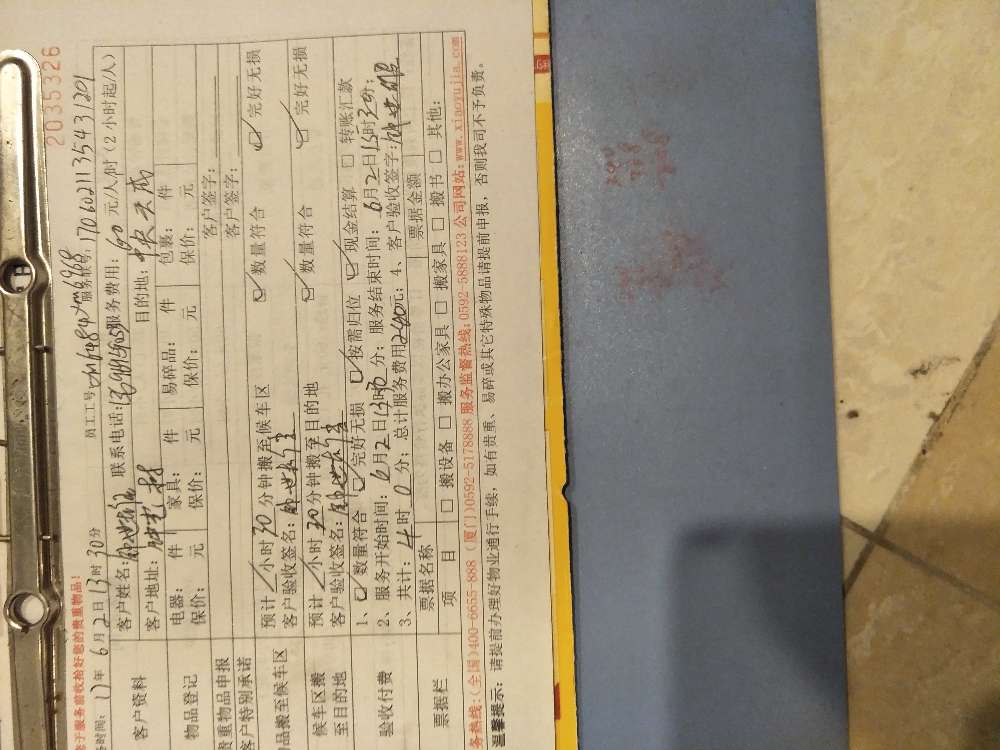 2035326
于服务前收拾好您的贵重物品！
务时间：17年6月2日13时30分 员工工号 服务帐号：1706021135431201
客户资料
客户姓名： 联系电话： 服务费用：60元/人/时（2小时起/人）
客户地址： 目的地：
物品登记
电器： 件 家具： 件 易碎品： 件 包裹： 件
保价： 元 保价： 元 保价： 元 保价： 元
贵重物品申报 客户签字：
客户特别承诺 客户签字：
品搬至候车区
预计 小时30分钟搬至候车区 数量符合 完好无损
客户验收签名：
候车区搬至目的地
预计 小时30分钟搬至目的地 数量符合 完好无损
客户验收签名：
验收付费
1、 数量符合 完好无损 按需归位 现金结算 □ 转账汇款
2、服务开始时间：6月2日13时30分；服务结束时间：6月2日 时30分；
3、共计：4时0分；总计服务费用 元；4、客户验收签字：
票据栏
票据名称 票据金额
项 目 □ 搬设备 □ 搬办公家具 □ 搬家具 □ 搬书 □ 其他：
务热线：(全国)400-6655-888 (厦门)0592-5178888 服务监督热线：0592-5888123 公司网站：www.xiaoyujia.com
温馨提示：请提前办理好物业通行手续，如有贵重、易碎或其它特殊物品请提前申报，否则我司不予负责。